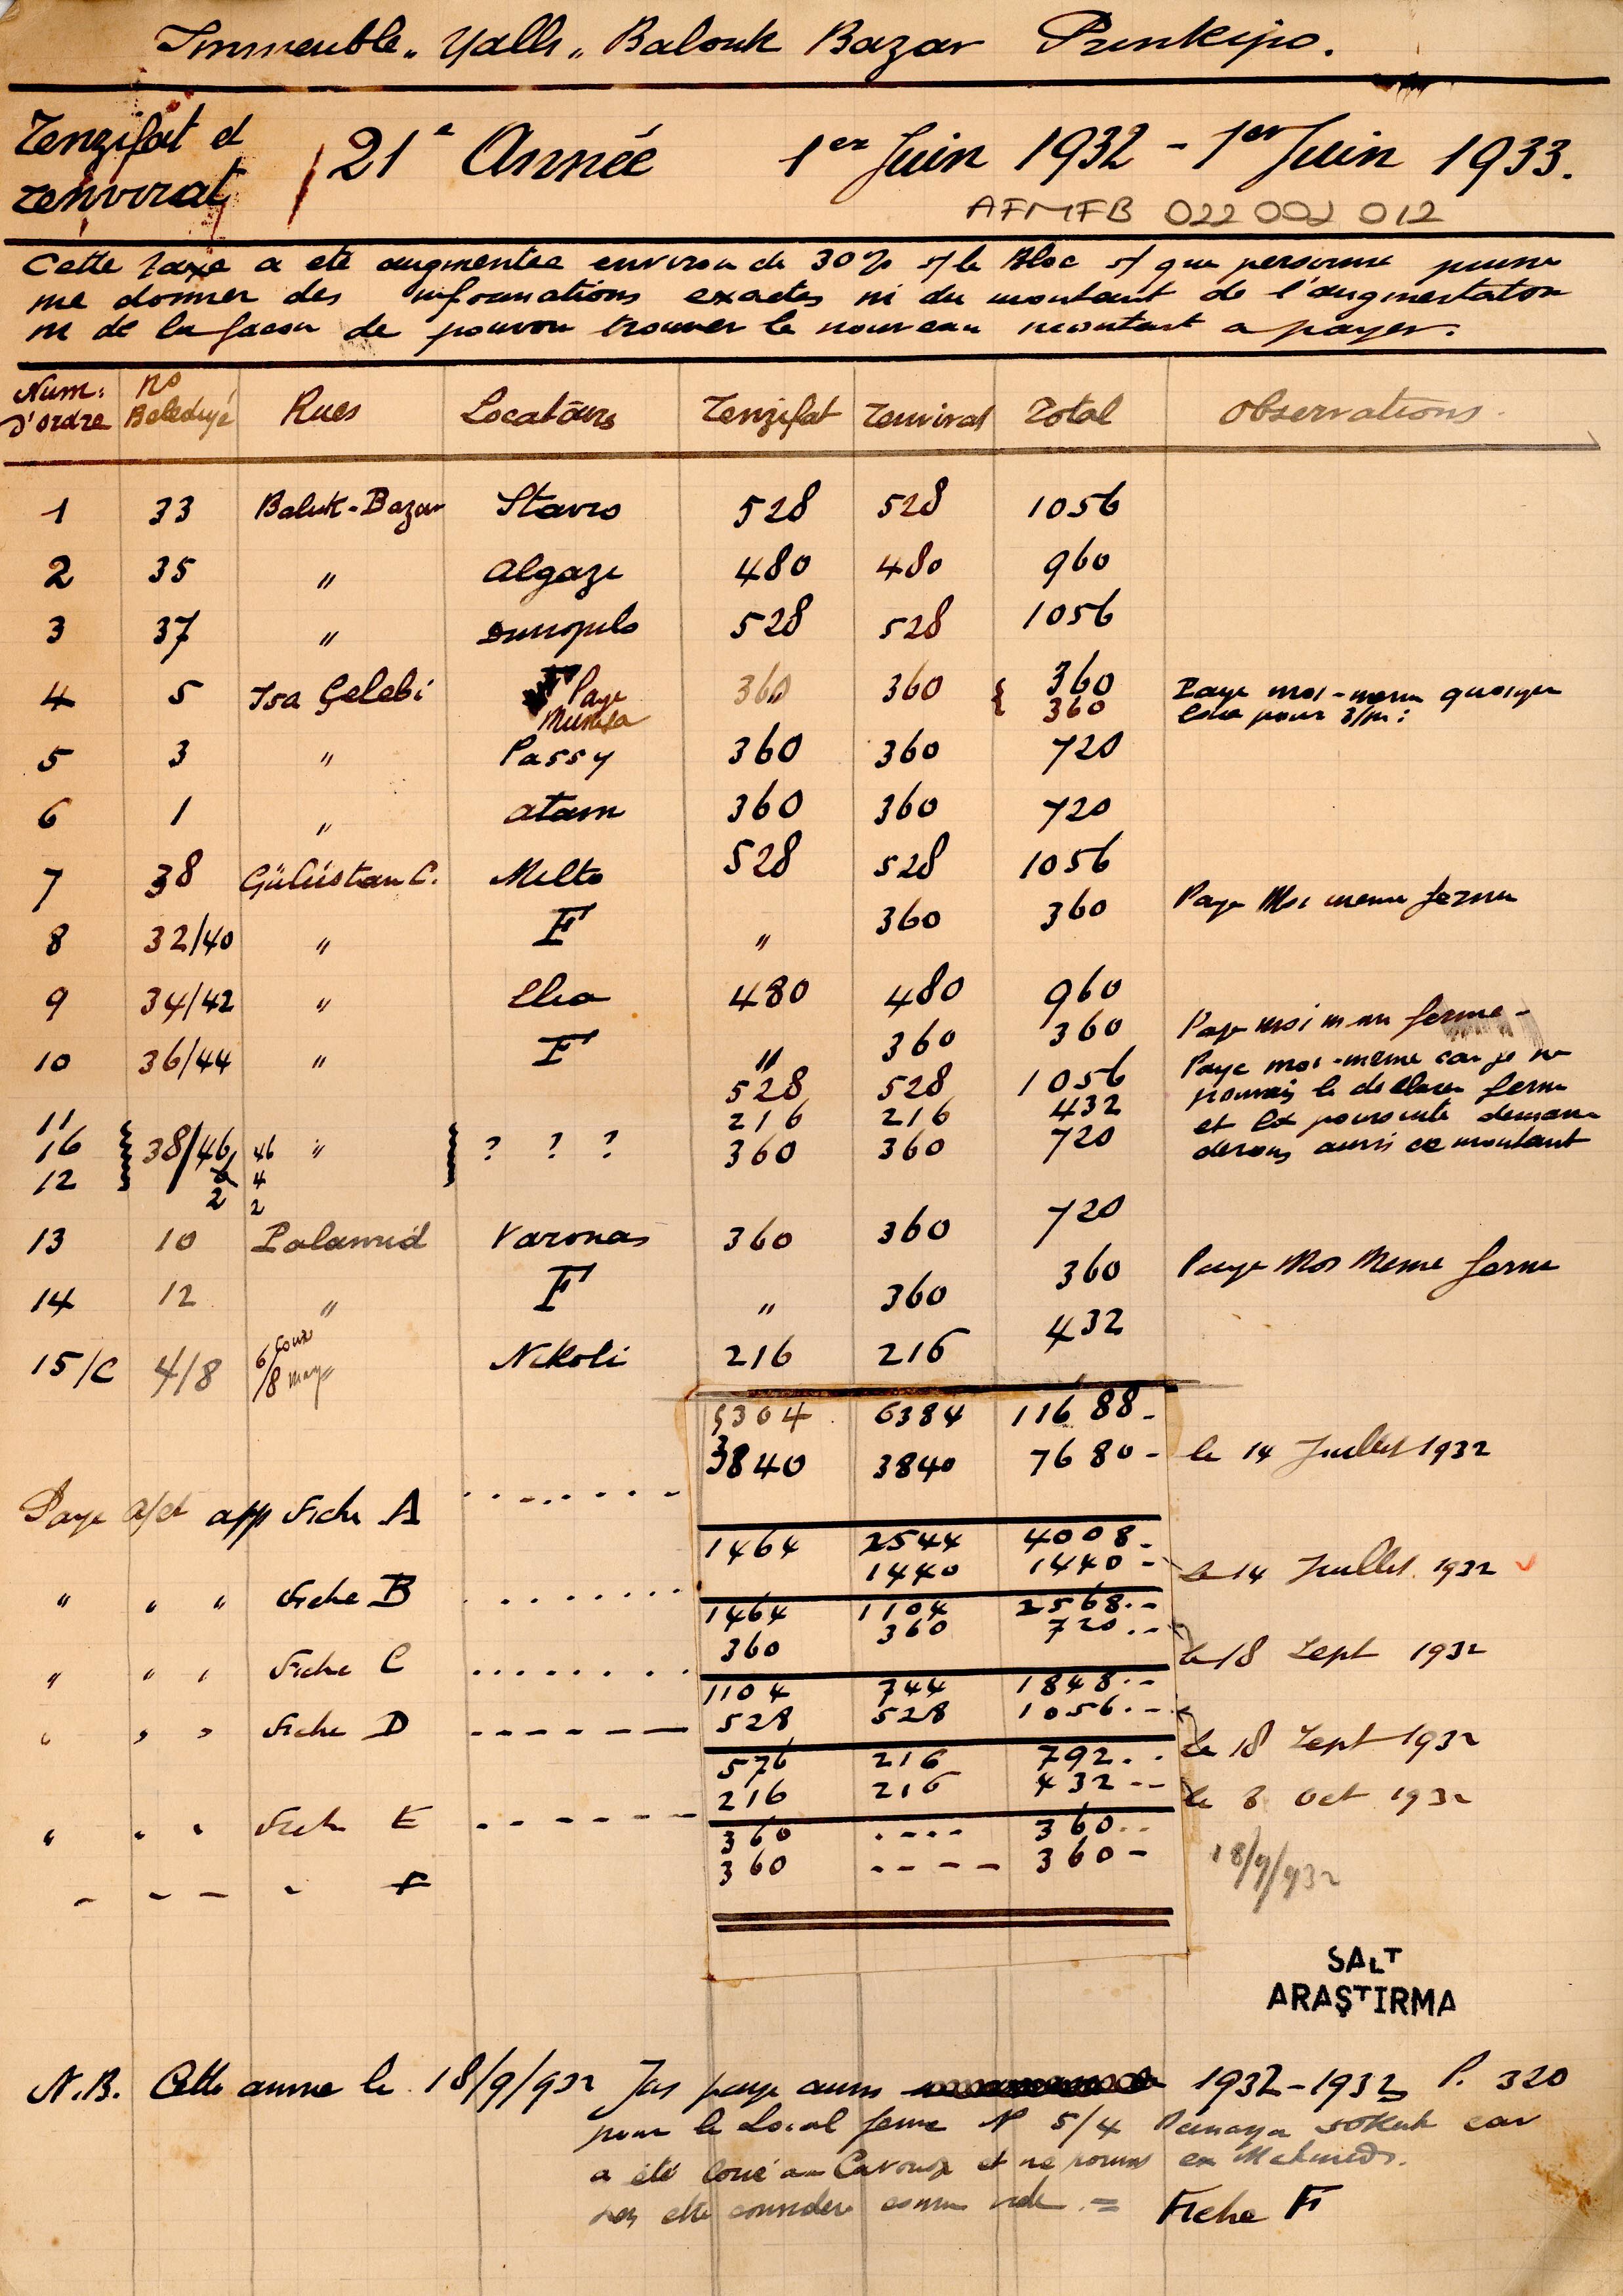 Immeuble „ Yallı „ Balouk Bazar Prinkipo.
Tenzifat et
tenvirat
21e Année 1er Juin 1932 - 1er Juin 1933.
AFMFB 022 002 012
Cette taxe a eté augmentée environ de 30% s/ le Bloc s/ que personne puisse
me donner des informations exactes ni du montant de l'augmentation
ni de la facon de pouvoir trouver le nouveau montant a payer.
Num. D'ordre No Belediyé Rues Locataires Tenzifat Tenvirat Total Observations.
1 33 Baluk-Bazar Stavro 528 528 1056
2 35 " Algaze 480 480 960
3 37 " 528 528 1056
4 5 Isa Çelebi Paye 360 " 360 { 360 360 Paye moi-meme quoique
loué pour 3/m:
5 3 " Passy 360 360 720
6 1 " Atam 360 360 720
7 38 Gülüstan C. Melto 528 528 1056
8 32/40 " F " 360 360 Paye Moi meme fermé
9 34/42 " Elia 480 480 960
10 36/44 " F " 360 360 Paye moi meme fermé -
11 528 528 1056 Paye moi-meme car je ne
16 38/46 46 " ? ? ? 216 216 432 pouvais le declarer fermé
12 2 4 2 360 360 720 et la poursuite deman
derons aussi ce montant
13 10 Palamud Varonas 360 360 720
14 12 " F " 360 360 Paye Moi Meme fermé
15/C 4/8 6/8 " Nikoli 216 216 432
5304 6384 11688-
3840 3840 7680- le 14 Juillet 1932
Paye a/ct app Fiche A
1464 2544 4008-
1440 1440- le 14 Juillet 1932
" " " Fiche B
1464 1104 2568.-
360 360 720.- le 18 Sept 1932
" " " Fiche C
1104 744 1848.-
528 528 1056.- le 18 Sept 1932
" " " Fiche D
576 216 792..
216 216 432-- le 8 Oct 1932
" " " Fiche E
360 .--- 360..
360 ---- 360- 18/9/932
- - - - F
SALT
ARAŞTIRMA
N.B. Cette annee le 18/9/932 J'ai paye aussi 1932-1932 P. 320
pour le Local fermé No 5/4 Panaya Sokak car
a été loué au et ne
comme vide. = Fiche F